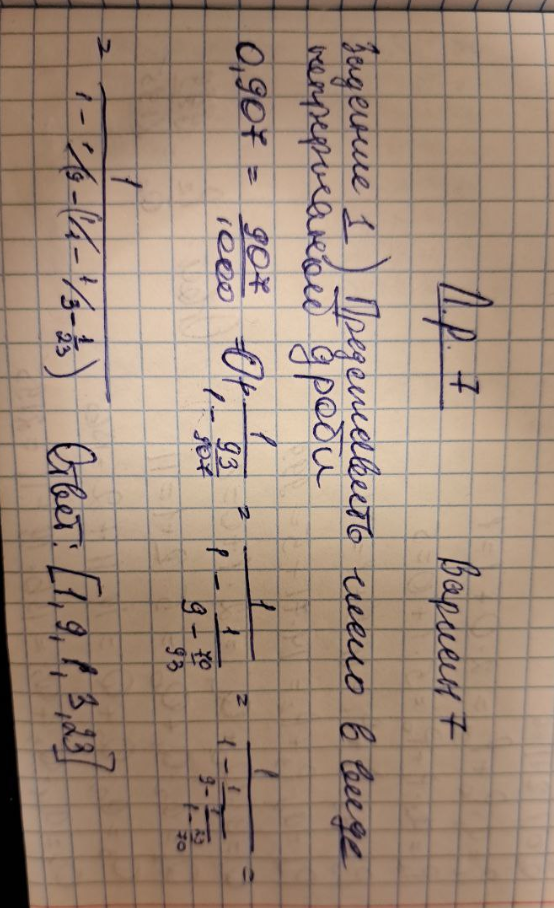 П.р. 7 Вариант 7
Задание 1) Представить число в виде
непрерывной дроби
0,907 = 907/1000 = 0+ 1/(1 - 93/907) = 1/(1 - 1/(9 - 70/93)) = 1/(1 - 1/(9 - 1/(1 - 23/70))) =
= 1/(1 - 1/9 - (1/1 - 1/3 - 1/23)) Ответ: [1, 9, 1, 3, 23]